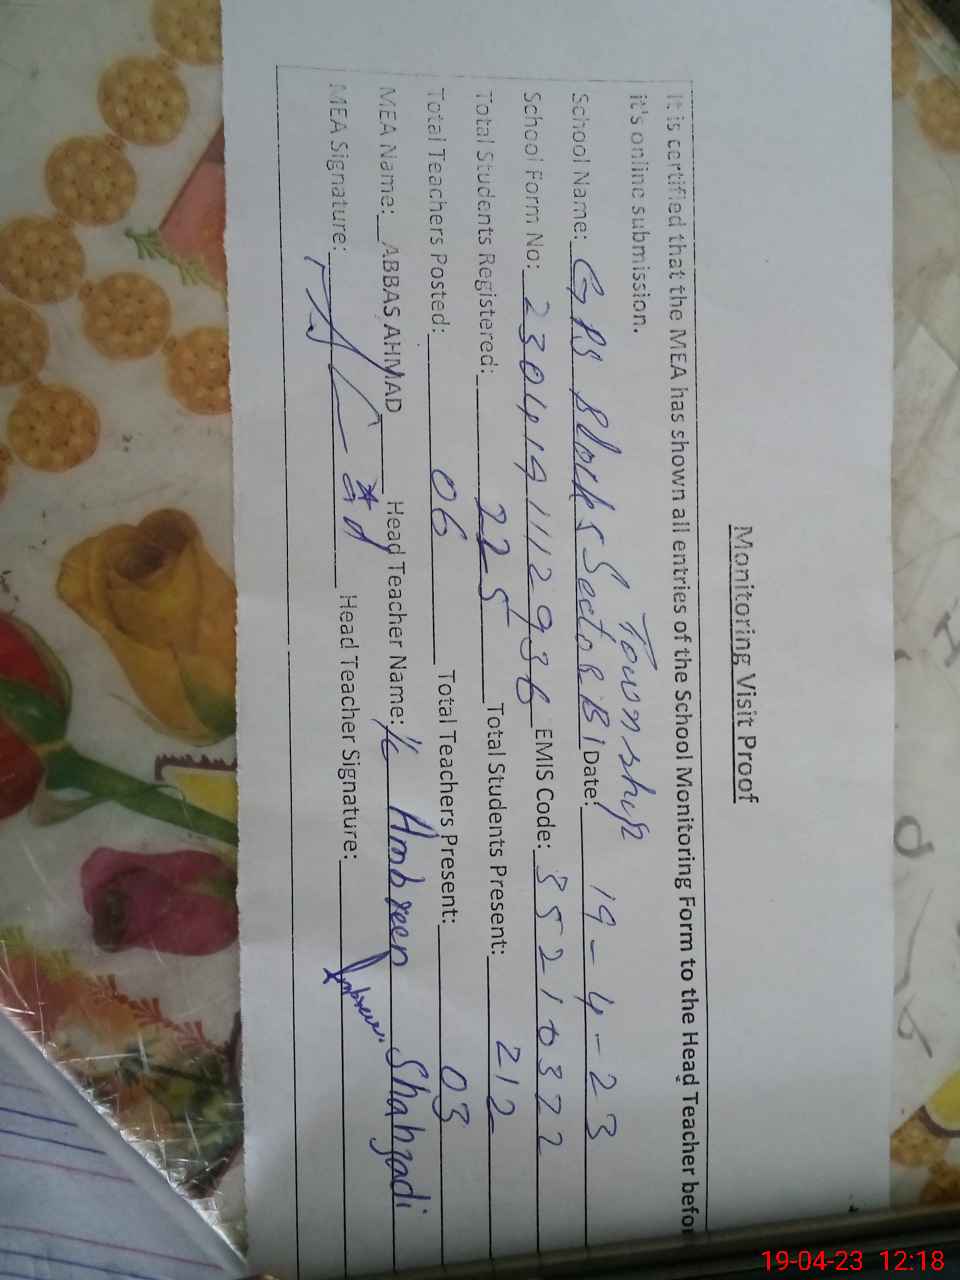 Monitoring Visit Proof
It is certified that the MEA has shown all entries of the School Monitoring Form to the Head Teacher befor
it's online submission.
Township
School Name: GPS Block 5 Sector B1 Date: 19-4-23
School Form No: 2304191112936 EMIS Code: 35210322
Total Students Registered: 225 Total Students Present: 212
Total Teachers Posted: 06 Total Teachers Present: 03
MEA Name: ABBAS AHMAD Head Teacher Name: I/C Ambreen Shahzadi
MEA Signature: Head Teacher Signature: Ambreen
19-04-23 12:18